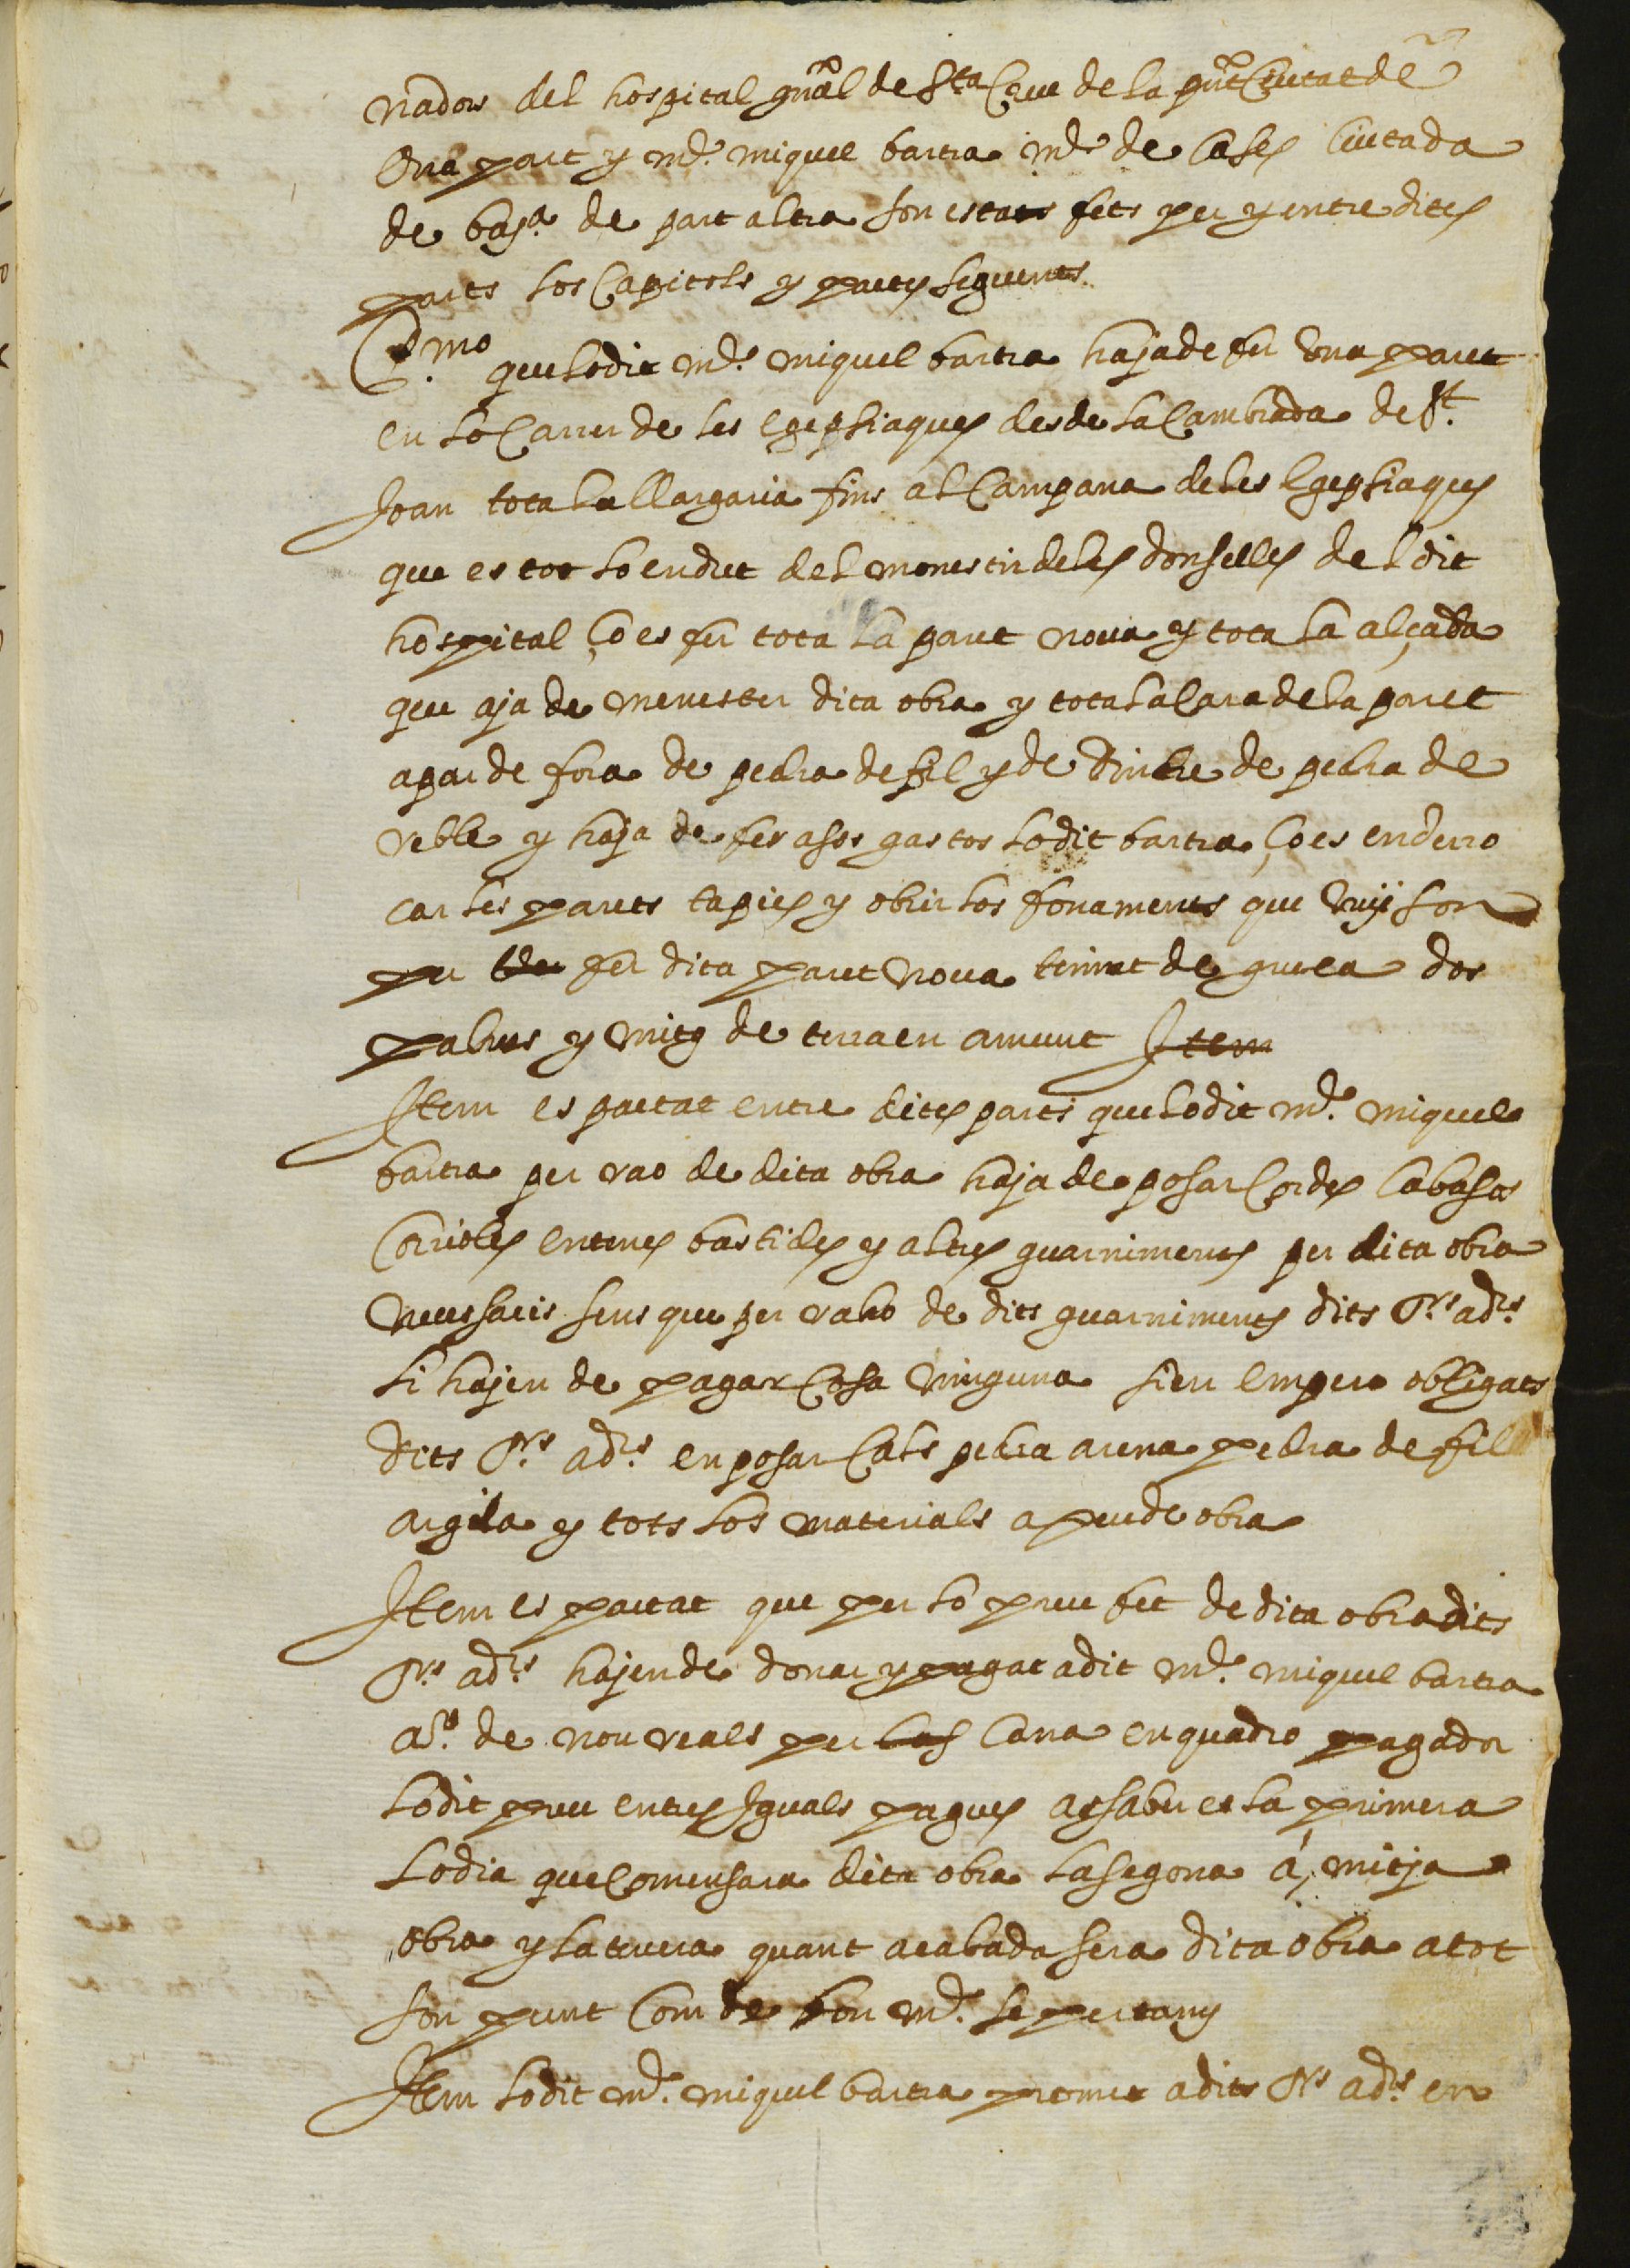 nadors del hospital gñal de Sta Creu de la pñt Ciutat de
Una part y m.e miquel bartra m.e de cases Ciutada
de bar.a de part altra son estats fets per y entre dites
parts los Capitols y pactes seguents
P.mo que lo dit m.e miquel bartra haja de fer Una paret
en lo Carrer de les egepsiaques des de la Cambrada de St.
Joan tota la llargaria fins al Campana de les Egepsiaques
que es tot lo endret del monestir deles donselles del dit
hospital ço es fer tota la paret nova y tota la alçada
que aja de menester dita obra y tota la Cara de la paret
a par de fora de pedra de fil y de dintre de pedra de
reble y haja de fer a sos gastos lo dit bartra ço es enderro
car les parets tapies y obrir los fonaments que Vuy son
per fer dita paret nova tenint de gruxa dos
palms y mitg de terra en amunt Item
Item es pactat entre dites parts que lo dit m.e miquel
bartra per rao de dita obra haja de posar Cordes Cabasos
Corrioles entenes bastides y altres guarniments per dita obra
necessaris sens que per raho de dits guarniments dits Srs adrs
li hajen de pagar Cosa ninguna sien empero obligats
dits Srs adrs en posar Cals pedra arena pedra de fil
argila y tots los materials a peu de obra
Item es pactat que per lo preu fet de dita obra dits
Srs adrs hajen de donar y pagar a dit m.e miquel bartra
a.o de nou reals per cana en quadro pagador
lo dit preu en tres Iguals pagues asaber es la primera
lo dia que Comensara dita obra la segona á mitja
obra y la tercera quant acabada sera dita obra a tot
son punt Com de bon m.e se pertany
Item lo dit m.e miquel bartra promet a dits Srs adrs en